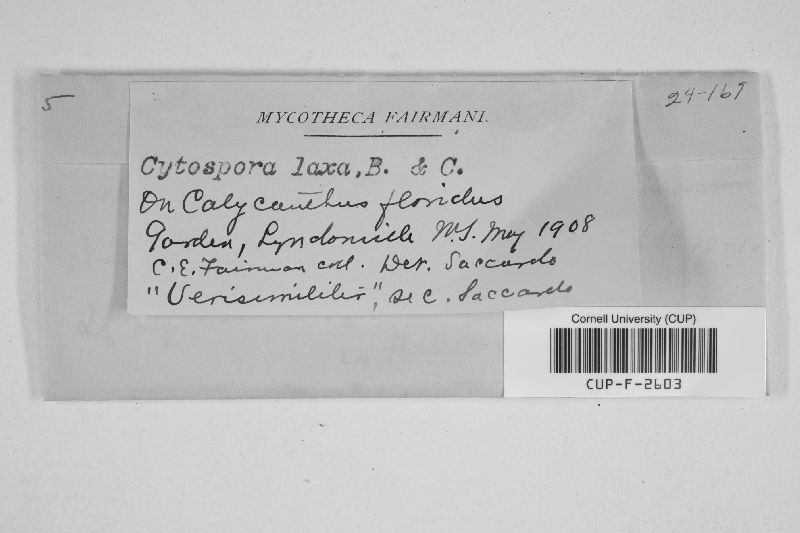 5
24-169
MYCOTHECA FAIRMANI.
Cytospora laxa, B. & C.
On Calycanthus floridus
Garden, Lyndonville N.Y. May 1908
C. E. Fairman col. Det. Saccardo
"Verisimiliter", sec. Saccardo
Cornell University (CUP)
CUP-F-2603